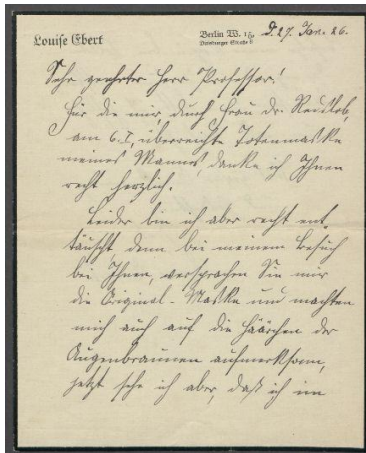 Louise Ebert
Berlin W. 15, d. 27. Jan. 26.
Straße
Sehr geehrter Herr Professor!
Für die mir, durch Frau Dr. Redslob,
am 6. I. überreichte Totenmaske
meines Mannes, danke ich Ihnen
recht herzlich.
Leider bin ich aber recht ent-
täuscht, denn bei meinem Besuch
bei Ihnen, versprachen Sie mir
die Original-Maske und machten
mich auch auf die Häärchen der
Augenbraunen aufmerksam,
jetzt sehe ich aber, daß ich im